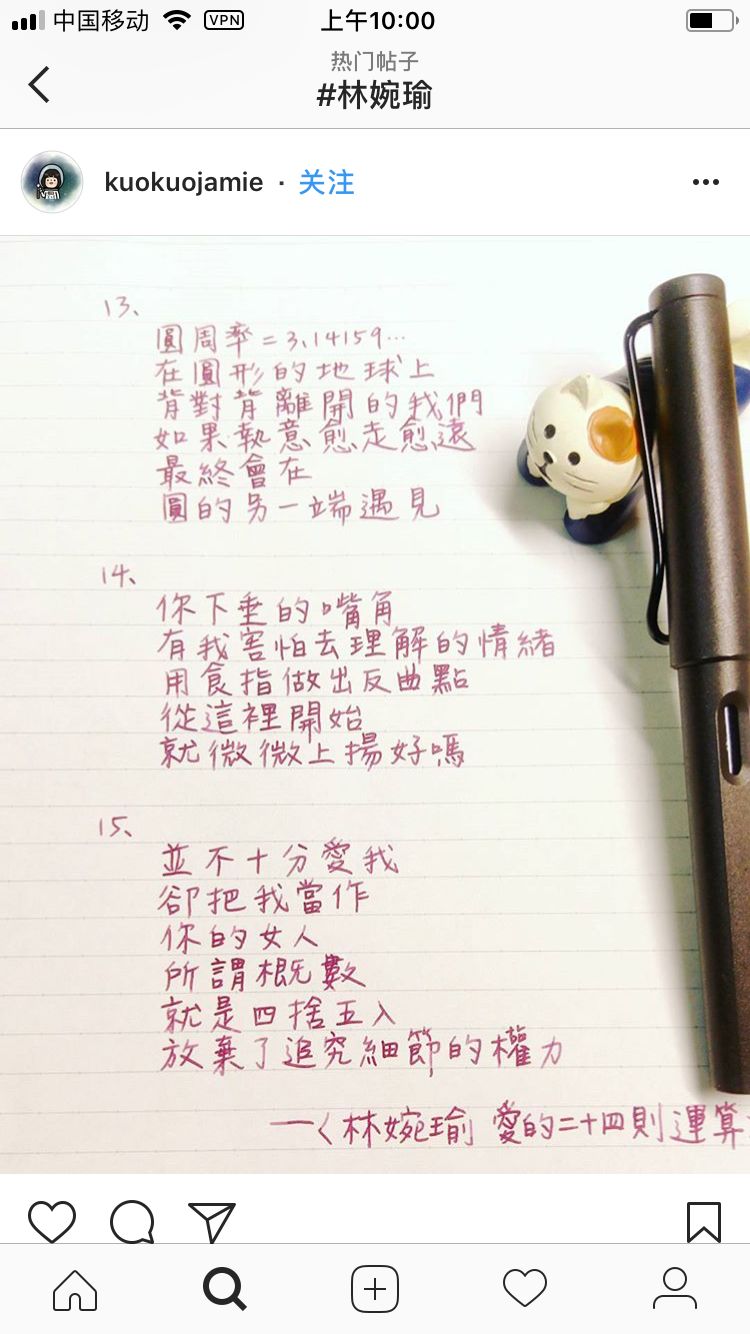 中国移动 VPN 上午10:00
热门帖子
#林婉瑜
kuokuojamie · 关注
13、
圓周率=3.14159…
在圓形的地球上
背對背離開的我們
如果執意愈走愈遠
最終會在
圓的另一端遇見
14、
你下垂的嘴角
有我害怕去理解的情緒
用食指做出反曲點
從這裡開始
就微微上揚好嗎
15、
並不十分愛我
卻把我當作
你的女人
所謂概數
就是四捨五入
放棄了追究細節的權力
—〈林婉瑜 愛的二十四則運算